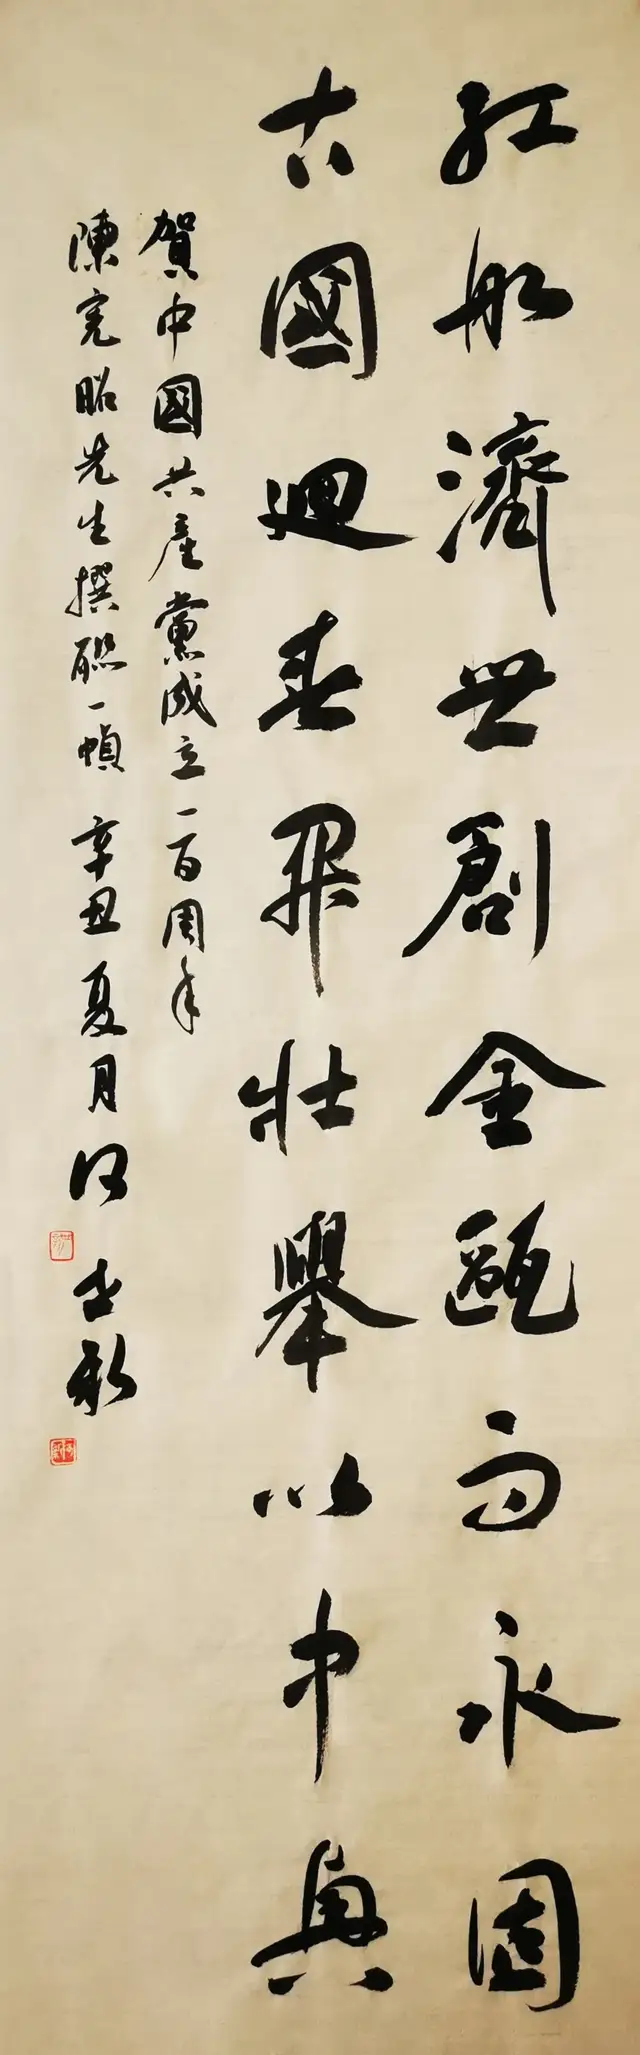 紅船濟世創金甌而永固
古國迴春昇壯舉以中興
賀中國共產黨成立一百周年
陳亮昭先生撰聯一幀 辛丑夏月何